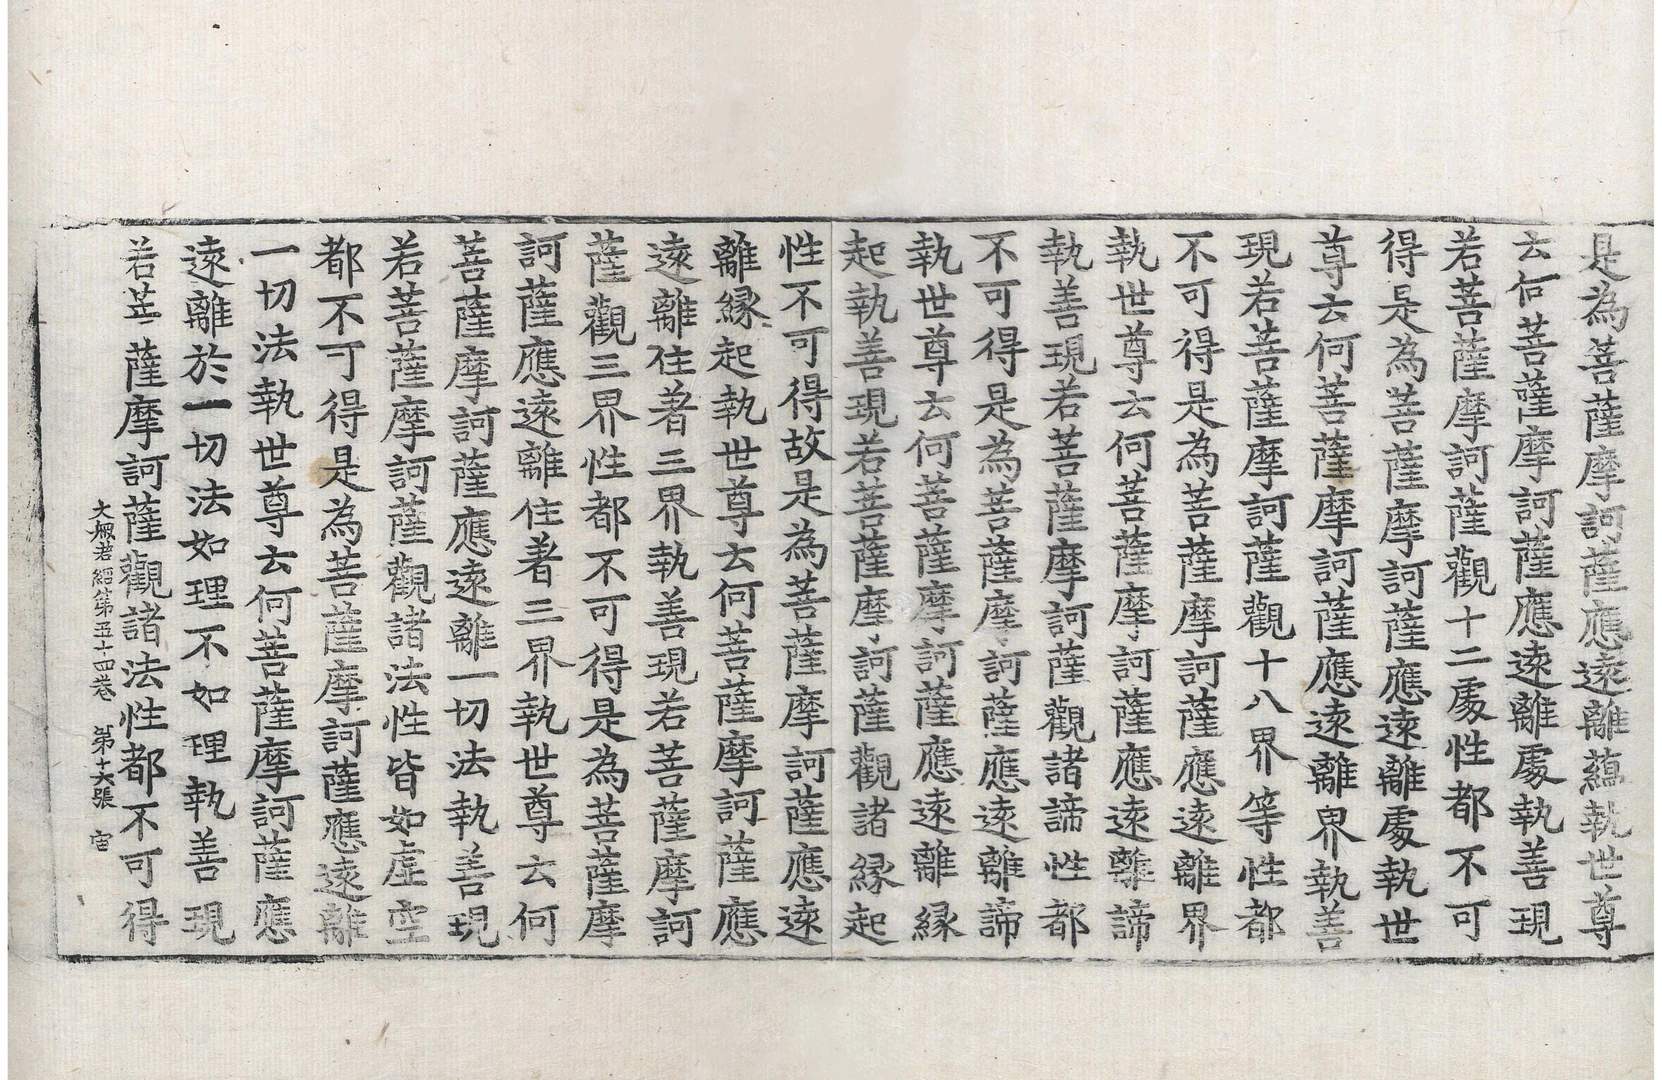 是為菩薩摩訶薩應遠離蘊執世尊
云何菩薩摩訶薩應遠離處執善現
若菩薩摩訶薩觀十二處性都不可
得是為菩薩摩訶薩應遠離處執世
尊云何菩薩摩訶薩應遠離界執善
現若菩薩摩訶薩觀十八界等性都
不可得是為菩薩摩訶薩應遠離界
執世尊云何菩薩摩訶薩應遠離諦
執善現若菩薩摩訶薩觀諸諦性都
不可得是為菩薩摩訶薩應遠離諦
執世尊云何菩薩摩訶薩應遠離緣
起執善現若菩薩摩訶薩觀諸緣起
性不可得故是為菩薩摩訶薩應遠
離緣起執世尊云何菩薩摩訶薩應
遠離住著三界執善現若菩薩摩訶
薩觀三界性都不可得是為菩薩摩
訶薩應遠離住著三界執世尊云何
菩薩摩訶薩應遠離一切法執善現
若菩薩摩訶薩觀諸法性皆如虛空
都不可得是為菩薩摩訶薩應遠離
一切法執世尊云何菩薩摩訶薩應
遠離於一切法如理不如理執善現
若菩薩摩訶薩觀諸法性都不可得
大般若經第五十四卷 第十六張 宙